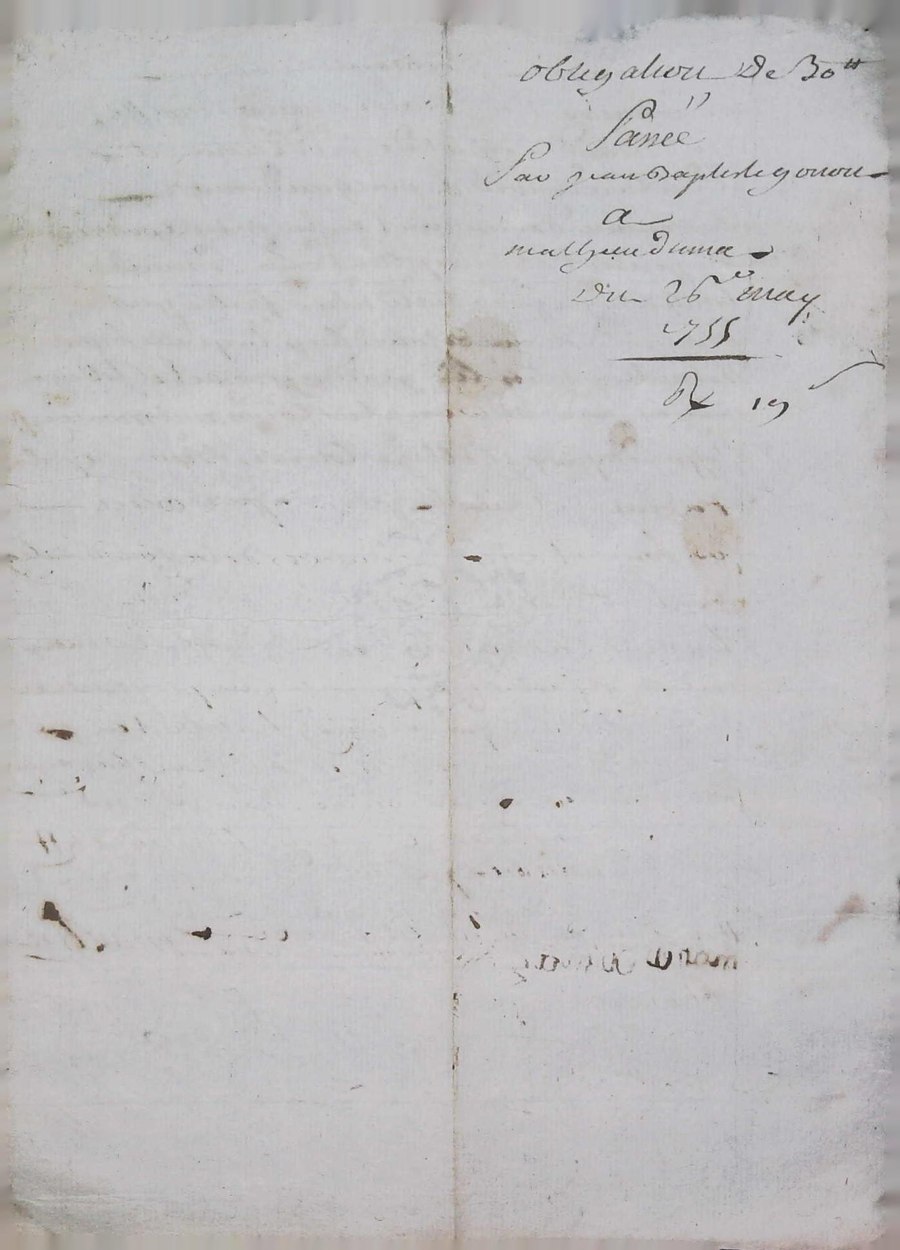 obligation De 30ᵗᵗ
Passée
Par jean Baptiste gonon
a
mathieu Duma
Du 26ᵉ may
1755
19